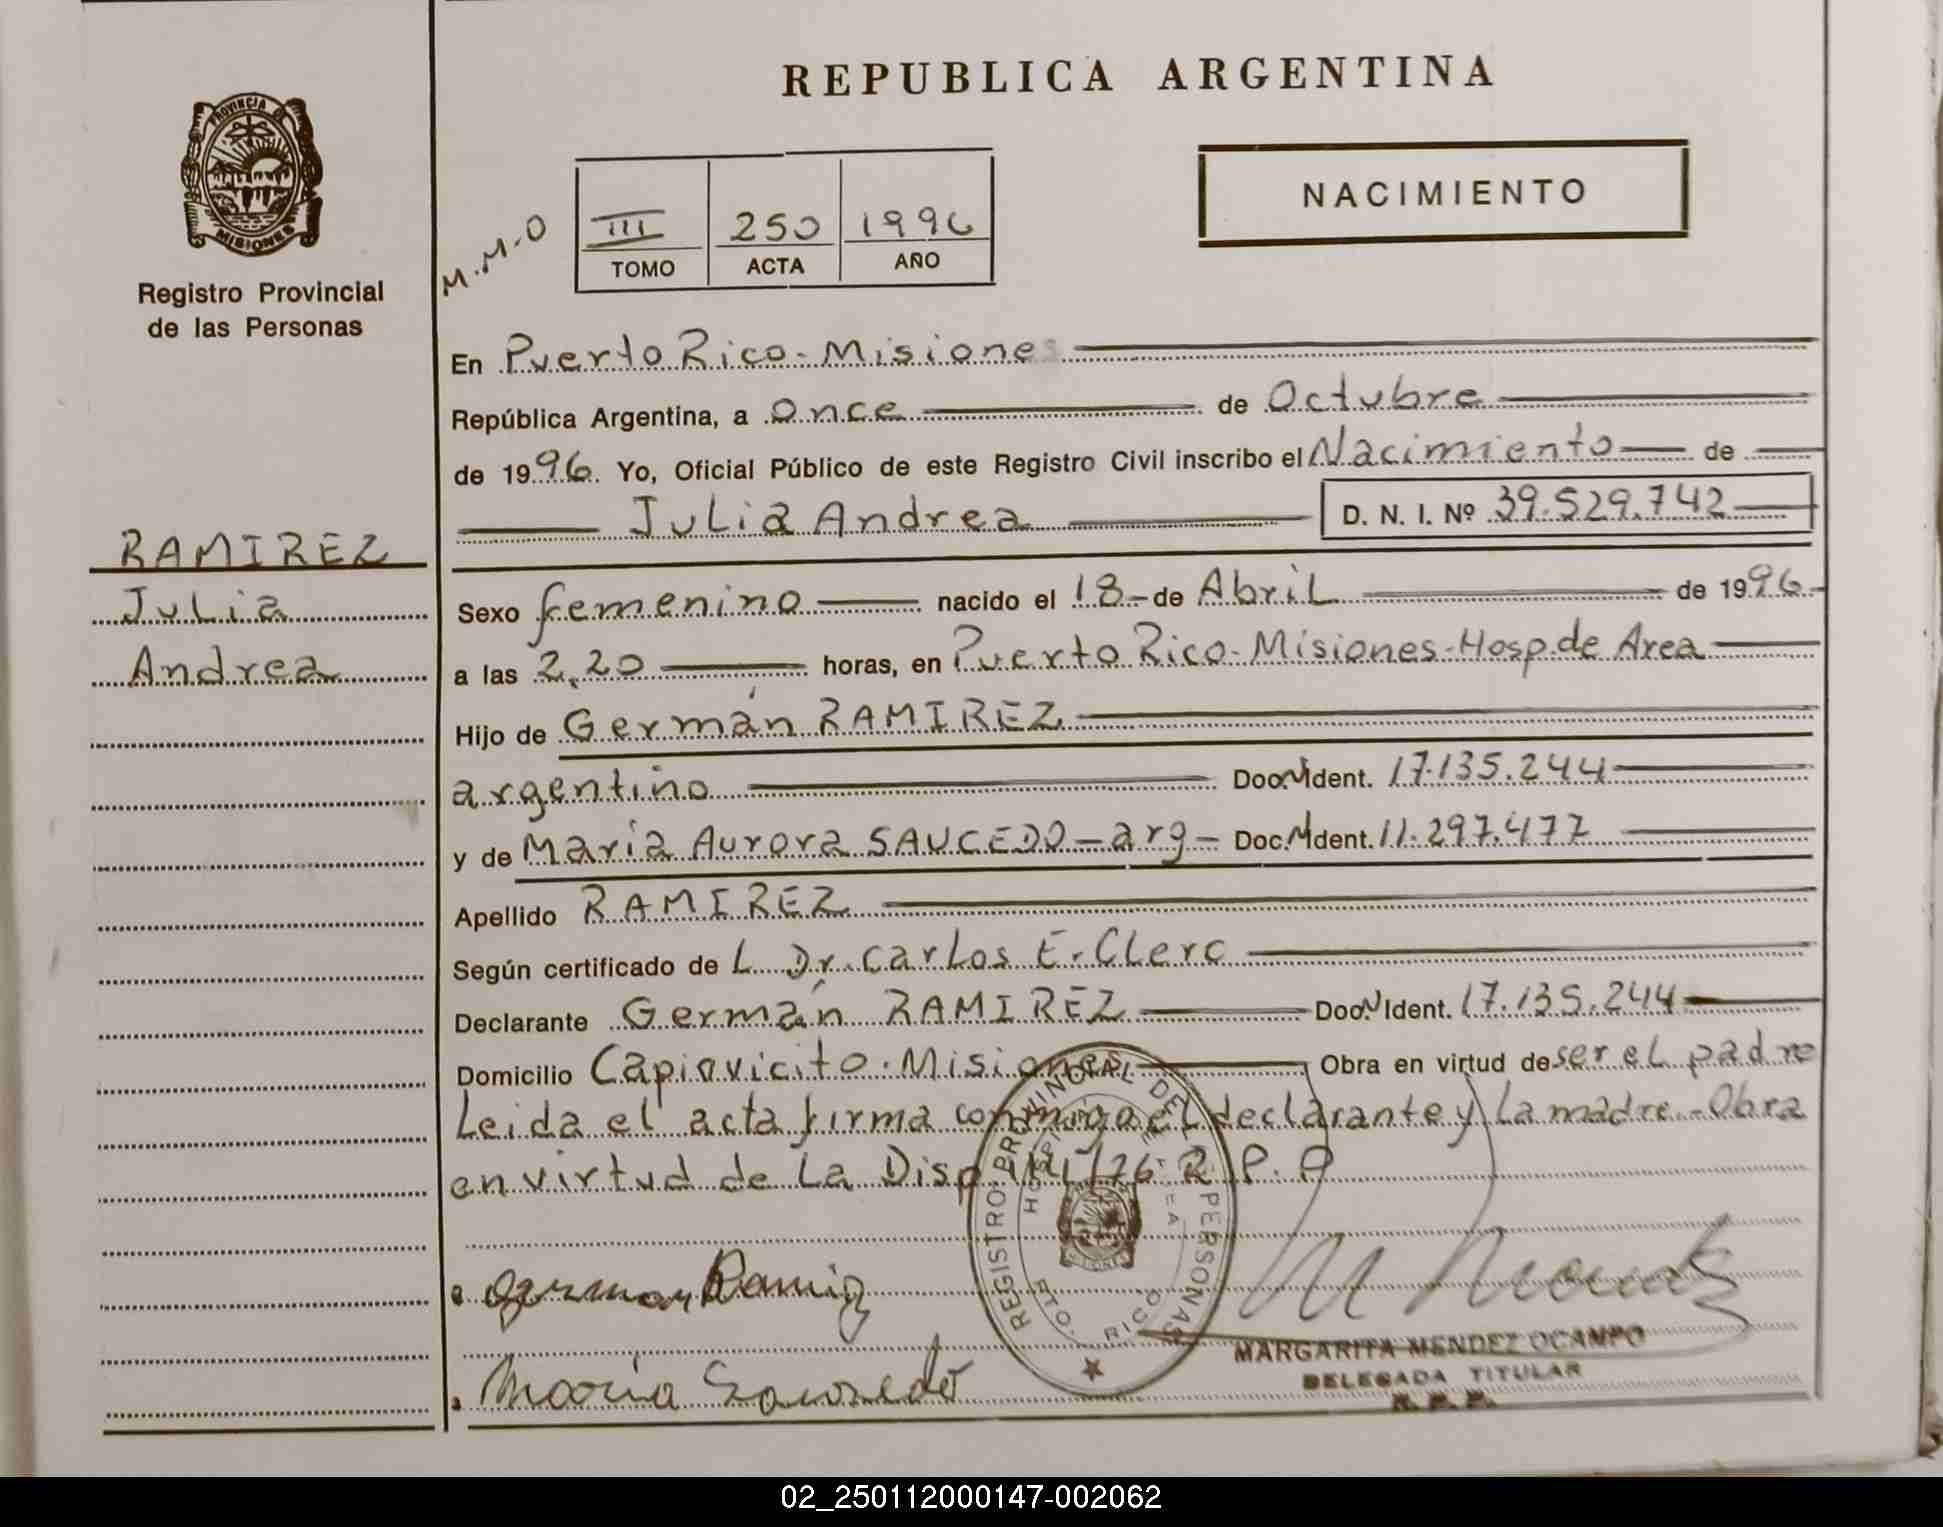 REPUBLICA ARGENTINA
PROVINCIA DE
MISIONES
Registro Provincial
de las Personas
NACIMIENTO
M.M.O
III 250 1996
TOMO ACTA AÑO
En Puerto Rico - Misiones
República Argentina, a once de Octubre
de 1996. Yo, Oficial Público de este Registro Civil inscribo el Nacimiento de
Julia Andrea D. N. I. Nº 39.529.742
RAMIREZ
Julia
Andrea
Sexo femenino nacido el 18 de Abril de 1996
a las 2,20 horas, en Puerto Rico - Misiones - Hosp. de Area
Hijo de Germán RAMIREZ
argentino Doc. N Ident. 17.135.244
y de Maria Aurora SAUCEDO - arg - Doc. N Ident. 11.297.477
Apellido RAMIREZ
Según certificado de L Dr. Carlos E. Clerc
Declarante Germán RAMIREZ Doc. N Ident. 17.135.244
Domicilio Capiovicito - Misiones Obra en virtud de ser el padre
Leida el acta firma conmigo el declarante y la madre - Obra
en virtud de la Disp. /76 R. P. P
REGISTRO PROVINCIAL DE PERSONAS
PTO. RICO
German Ramirez
Maria Saucedo
MARGARITA MENDEZ OCAMPO
DELEGADA TITULAR
R. P. P.
02_250112000147-002062